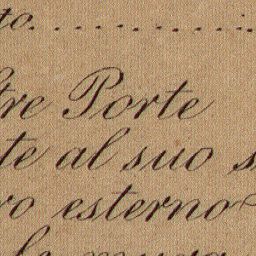 to. . . . . . . . .
tre Porte
te al suo s
ro esterno